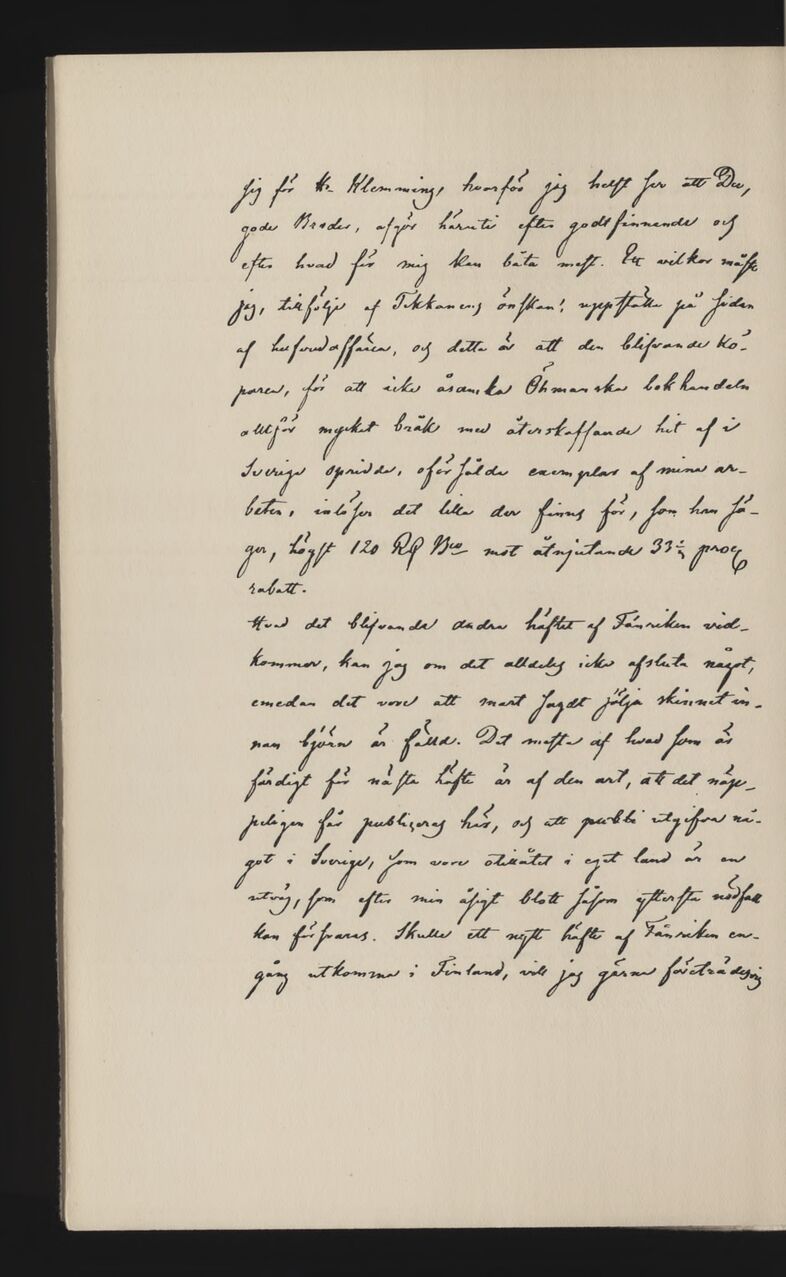 sig för Hr Klemming, hvarför jag helst ser att Du,
gode Broder, afgör häruti efter godtfinnande och
efter hvad för mig kan båta mest. Ett vilkor måste
jag, tillfölje af Tikkanens önskan, uppställa på sidan
af hufvudaffären, och detta är att den blifvande kö-
paren, för att icke åsamka Öhmanska bokhandeln
alltför mycket bråk med återskaffande hit af i
Sverige spridda, oförsålda exemplar af mina ar-
beten, inlöser det lilla der finns för, som han sä-
ger, högst 120 Rd Bco mot åtnjutande 33⅓ proc
rabatt.
Hvad det blifvande andra häftet af Fänriken vid-
kommer, kan jag om det alldeles icke afsluta något,
emedan det vore att snart sagdt sälja skinnet in-
nan björn är fälld. Det mesta af hvad som är
färdigt för nästa häfte är af den art, att det näp-
peligen får publiceras här, och att utgifva nå-
got i Sverige, som vore otillåtet i eget land är en
utväg, som efter min åsigt blott såsom yttersta nödfall
kan försvaras. Skulle ett nytt häfte af Fänriken en-
gång utkomma i Finland, vill jag gärna företrädesvis